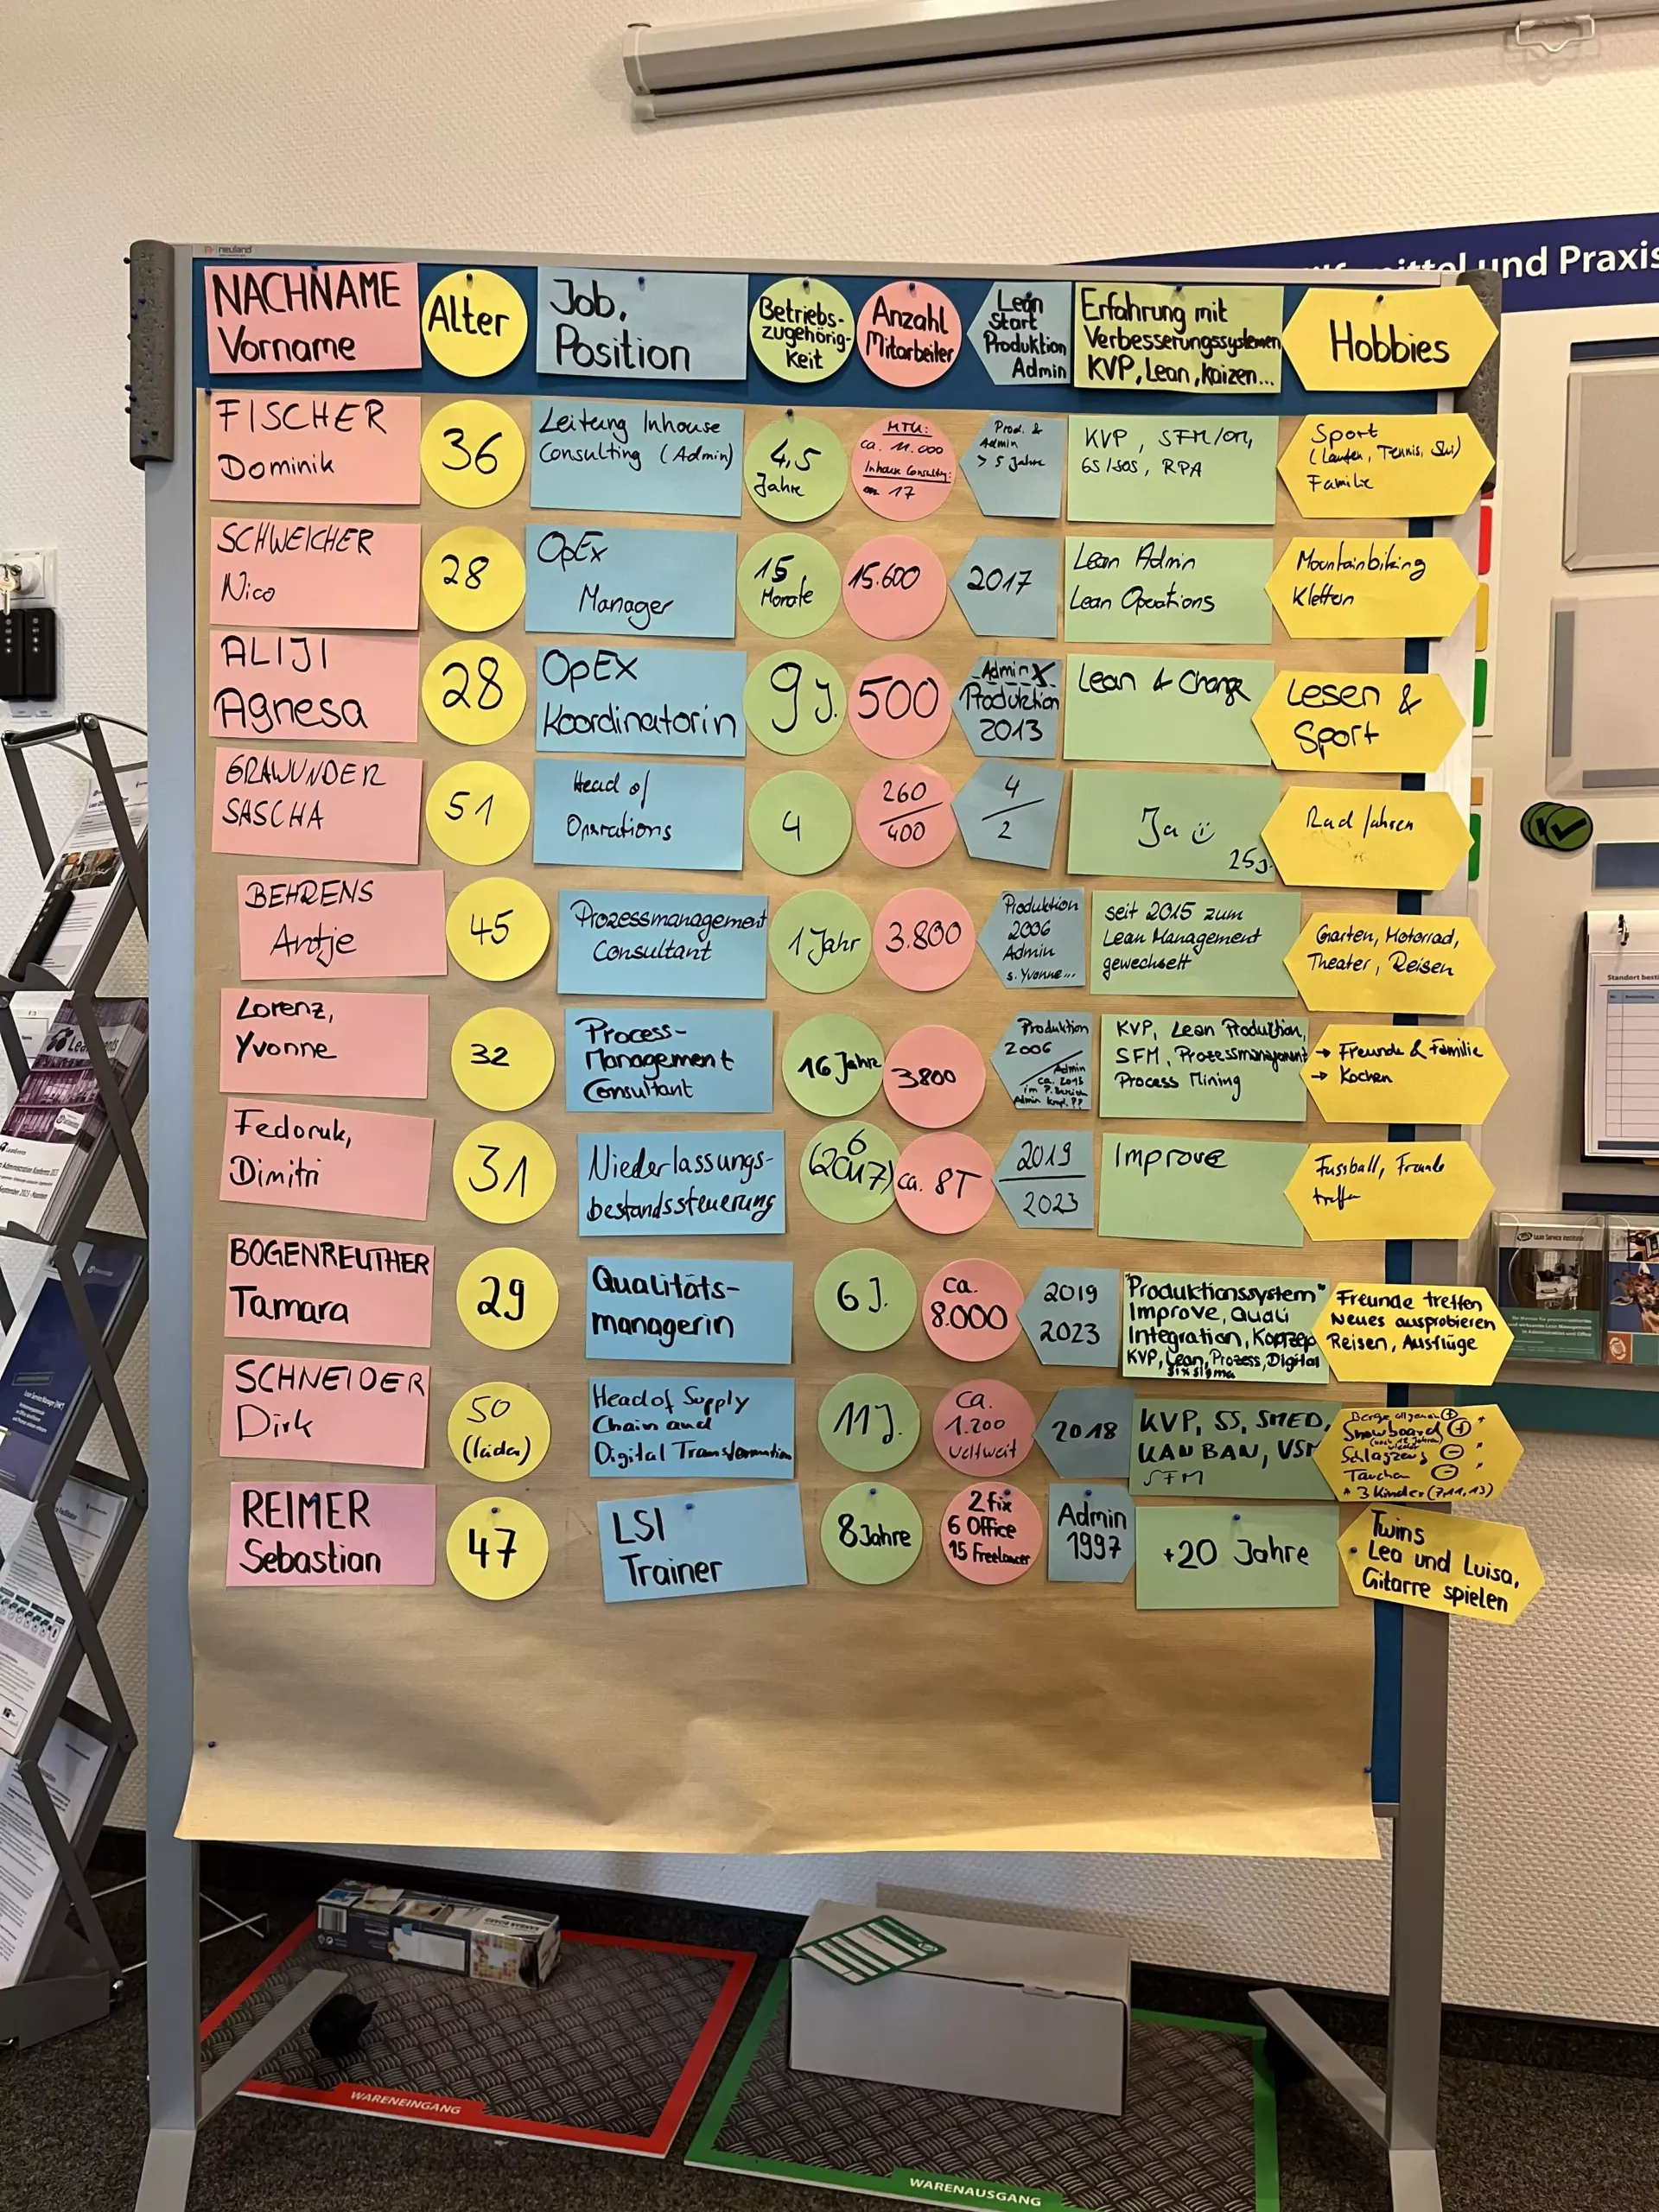 neuland
NACHNAME
Vorname
Alter
Job,
Position
Betriebs-
zugehörig-
keit
Anzahl
Mitarbeiter
Lean
Start
Produktion
Admin
Erfahrung mit
Verbesserungssystemen
KVP, Lean, Kaizen...
Hobbies
und Praxis
FISCHER
Dominik
36
Leitung Inhouse
Consulting (Admin)
4,5
Jahre
MTU:
ca. 11.000
Inhouse Consulting:
17
Prod. &
Admin
> 5 Jahre
KVP, SFM/
6S/5OS, RPA
Sport
(Laufen, Tennis, Ski)
Familie
SCHWEICHER
Nico
28
OpEx
Manager
15
Monate
15.600
2017
Lean Admin
Lean Operations
Mountainbiking
Klettern
ALIJI
Agnesa
28
OpEX
Koordinatorin
9 J.
500
Admin X
Produktion
2013
Lean & Change
Lesen &
Sport
GRAWUNDER
SASCHA
51
Head of
Operations
4
260
400
4
2
Ja
25 J.
Rad fahren
BEHRENS
Antje
45
Prozessmanagement
Consultant
1 Jahr
3.800
Produktion
2006
Admin
s. Yvonne...
seit 2015 zum
Lean Management
gewechselt
Garten, Motorrad,
Theater, Reisen
Lorenz,
Yvonne
32
Process-
Management
Consultant
16 Jahre
3800
Produktion
2006
Admin
ca. 2015
im P. Bereich
Admin kmpl. ??
KVP, Lean Produktion,
SFM, Prozessmanagement
Process Mining
→ Freunde & Familie
→ Kochen
Fedoruk,
Dimitri
31
Niederlassungs-
bestandssteuerung
6
(2017)
ca. 8T
2019
2023
Improve
Fussball, Freunde
treffen
BOGENREUTHER
Tamara
29
Qualitäts-
managerin
6 J.
ca.
8.000
2019
2023
"Produktionssystem"
Improve, Quali
Integration, Konzep
KVP, Lean, Prozess, Digital
Six Sigma
Freunde treffen
Neues ausprobieren
Reisen, Ausflüge
SCHNEIDER
Dirk
50
(leider)
Head of Supply
Chain and
Digital Transformation
11 J.
ca.
1.200
weltweit
2018
KVP, 5S, SMED,
KANBAN, VSM
SFM
Berge allgemein
Snowboard
Schlagzeug
Tauchen
* 3 Kinder (7,11,13)
REIMER
Sebastian
47
LSI
Trainer
8 Jahre
2 fix
6 Office
15 Freelancer
Admin
1997
+20 Jahre
Twins
Lea und Luisa,
Gitarre spielen
Lean Service Institute
WARENEINGANG
WARENAUSGANG